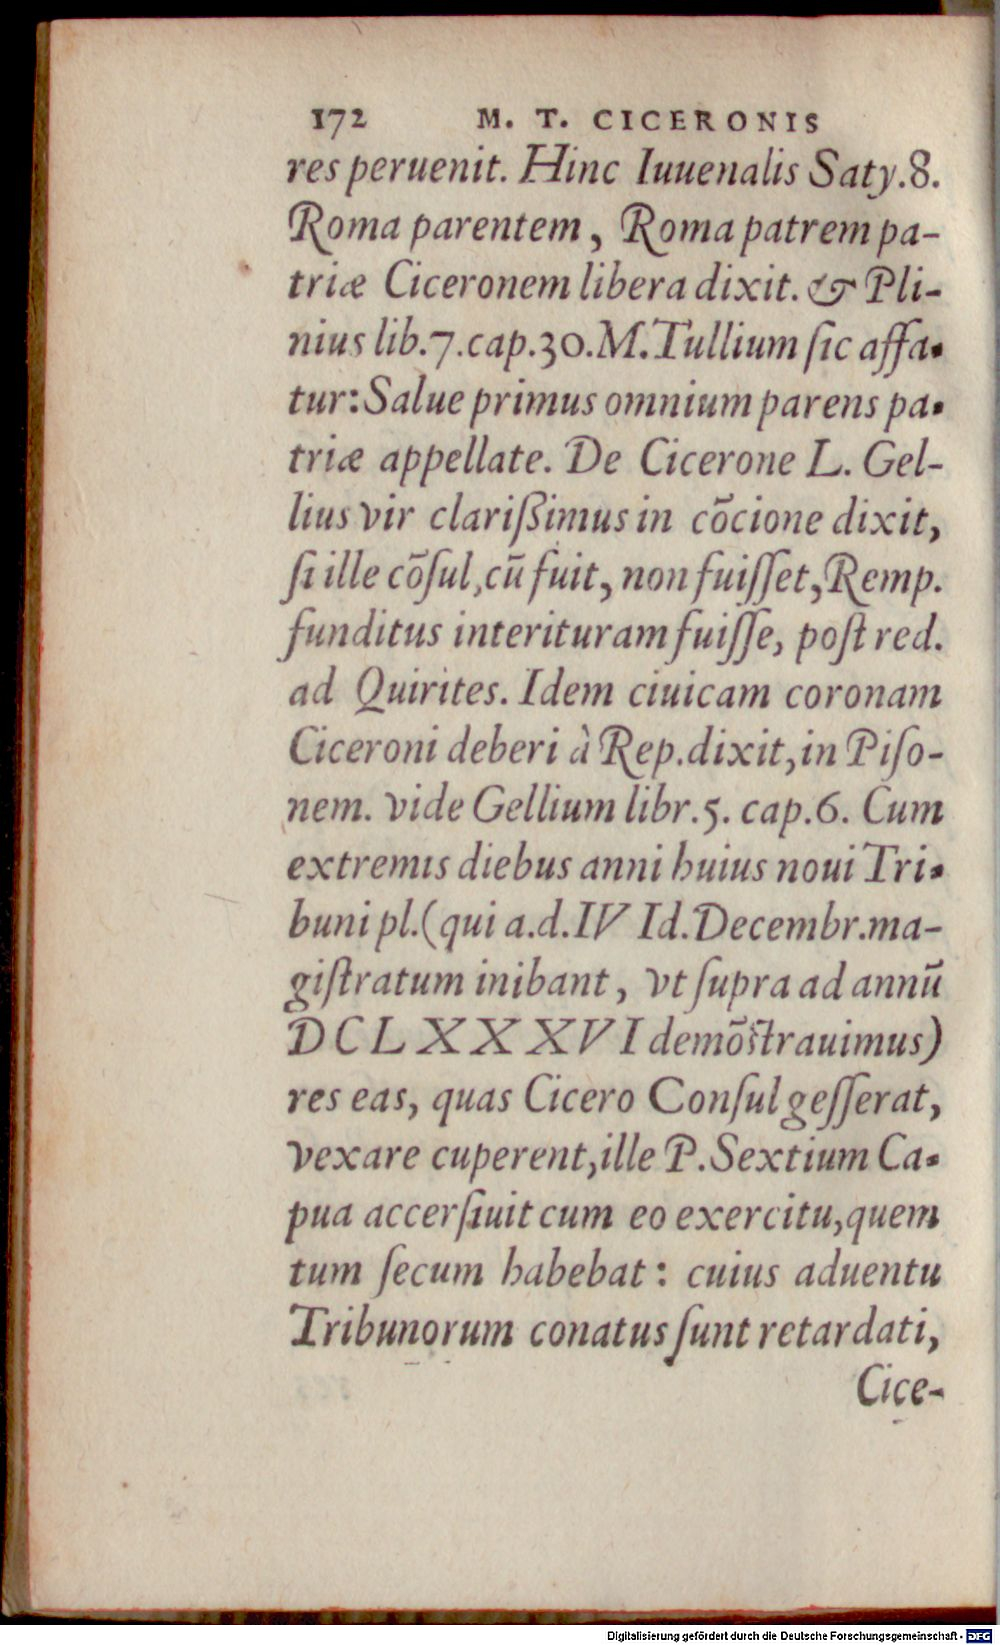 172 M. T. CICERONIS
res peruenit. Hinc Iuuenalis Saty.8.
Roma parentem, Roma patrem pa-
triæ Ciceronem libera dixit. & Pli-
nius lib.7.cap.30.M.Tullium ſic affa-
tur: Salue primus omnium parens pa-
triæ appellate. De Cicerone L. Gel-
lius vir clariſſimus in cōcione dixit,
ſi ille cōſul, cū fuit, non fuiſſet, Remp.
funditus interituram fuiſſe, poſt red.
ad Quirites. Idem ciuicam coronam
Ciceroni deberi à Rep. dixit, in Piſo-
nem. vide Gellium libr.5. cap.6. Cum
extremis diebus anni huius noui Tri-
buni pl.(qui a.d.IV Id.Decembr.ma-
giſtratum inibant, vt ſupra ad annū
DCLXXXVI demōſtrauimus)
res eas, quas Cicero Conſul geſſerat,
vexare cuperent, ille P.Sextium Ca-
pua accerſiuit cum eo exercitu, quem
tum ſecum habebat: cuius aduentu
Tribunorum conatus ſunt retardati,
Cice-
Digitalisierung gefördert durch die Deutsche Forschungsgemeinschaft - DFG